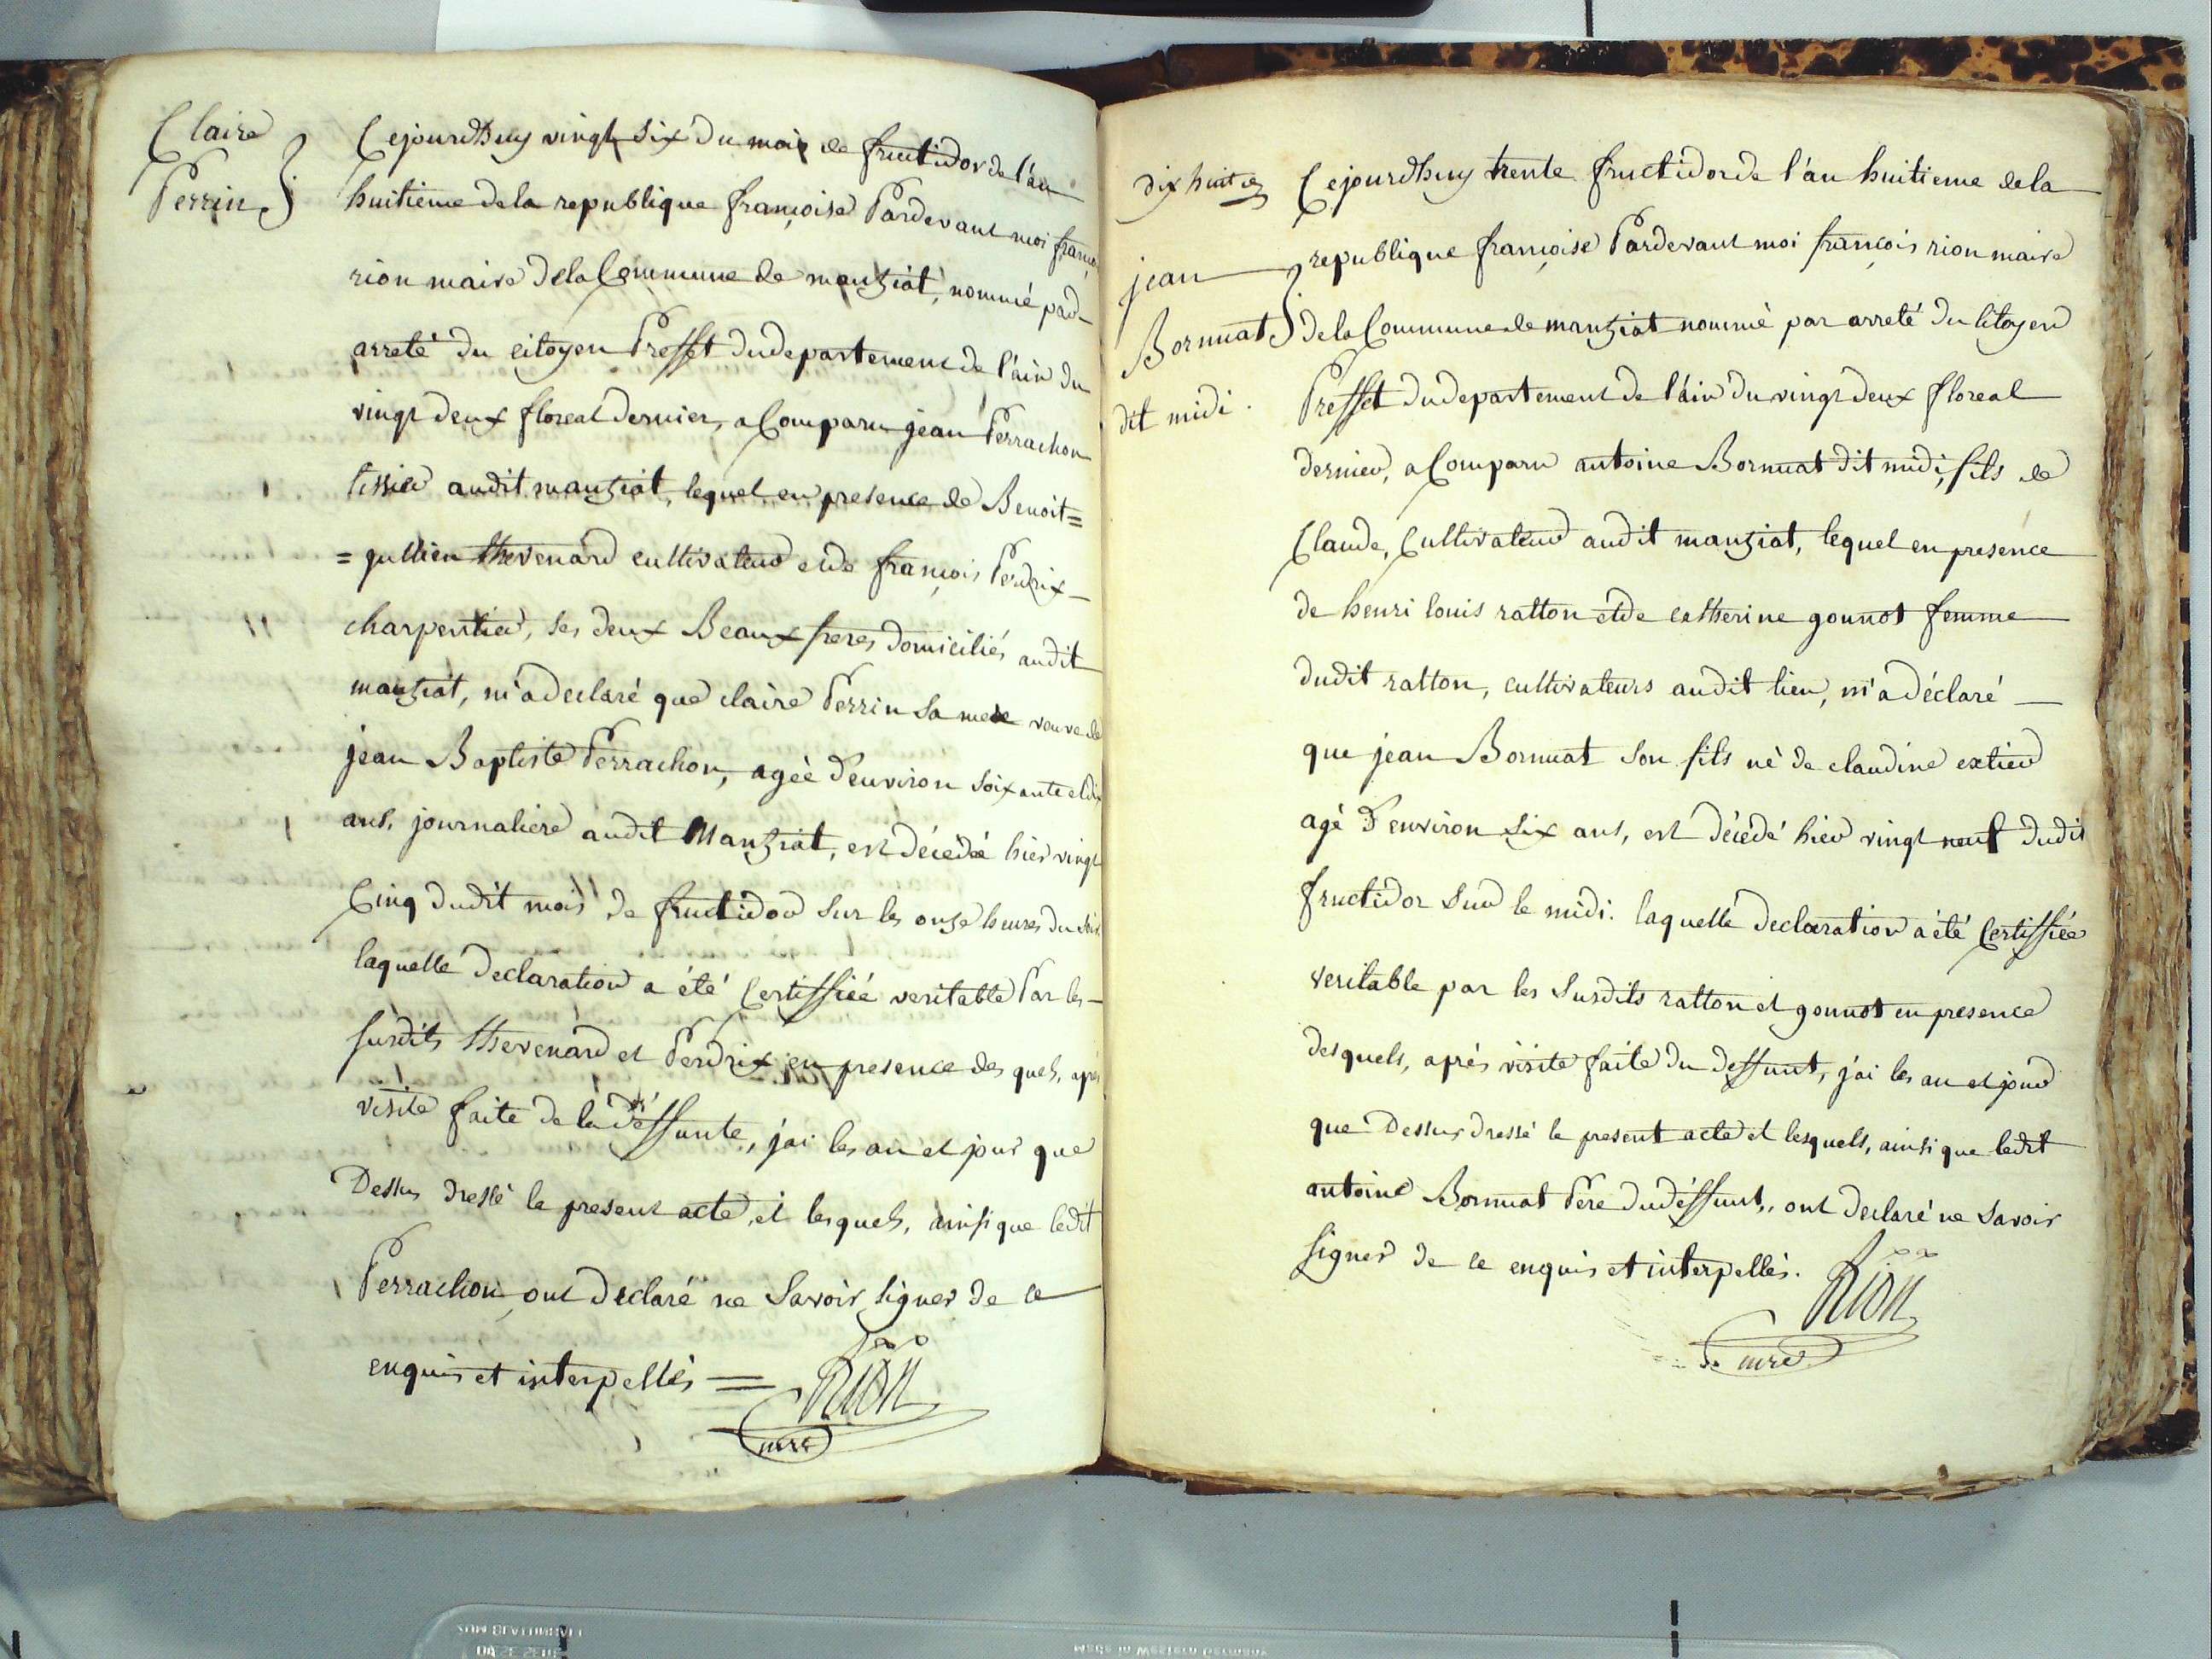 Claire
Perrin
Cejourdhuy vingt six du mois de fructidor de l'an
huitieme de la republique françoise Pardevant moi françois
rion maire de la Commune de manziat, nommé par
arreté du citoyen Preffet du departement de l'ain du
vingt deux floreal dernier, a Comparu jean Perrachon
tissier audit manziat, lequel en presence de Benoit=
=jullien thevenard cultivateur et de françois Perdrix
charpentier, ses deux Beaux freres domiciliés audit
manziat, m'a declaré que claire Perrin sa mere veuve de
jean Baptiste Perrachon, agée d'environ soixante et dix
ans, journaliere audit Manziat, est décédée hier vingt
Cinq dudit mois de fructidor sur les onze heures du soir.
laquelle declaration a été Certiffiée veritable Par les
susdits thevenard et Perdrix en presence des quels, après
visite faite de la deffunte, j'ai les an et jour que
Dessus dressé le present acte, et lesquels, ainsi que ledit
Perrachon ont declaré ne Savoir signer de ce
enquis et interpellés =
Rion
mre
dix huit
jean
Bornuat
dit midi.
Cejourdhuy trente fructidor de l'an huitieme de la
republique françoise Pardevant moi françois rion maire
de la Commune de manziat nommé par arreté du Citoyen
Preffet du departement de l'ain du vingt deux floreal
dernier, a Comparu antoine Bornuat dit midi, fils de
Claude, Cultivateur audit manziat, lequel en presence
de henri louis ratton et de catherine gonnot femme
dudit ratton, cultivateurs audit lieu, m'a déclaré
que jean Bornuat son fils né de claudine extier
agé d'environ six ans, est décédé hier vingt neuf dudit
fructidor sur le midi. laquelle declaration a été Certiffiée
veritable par les susdits ratton et gonnot en presence
desquels, après visite faite du deffunt, j'ai les an et jour
que Dessus dressé le present acte et lesquels, ainsi que ledit
antoine Bornuat Pere du déffunt, ont declaré ne savoir
signer de ce enquis et interpellés.
Rion
mre
Made in Western Germany